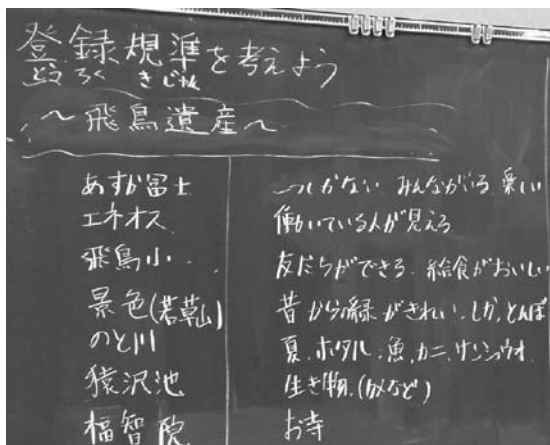 登録規準を考えよう
とうろく きじゅん
〜飛鳥遺産〜
あすか冨士 一つしかない みんながいる 楽しい
エネオス 働いている人が見える
飛鳥小 友だちができる 給食がおいしい
景色(若草山) 昔から緑がきれい、しか、とんぼ
のと川 夏、ホタル、魚、カニ、サンショウオ
猿沢池 生き物、(カメなど)
福智院 お寺